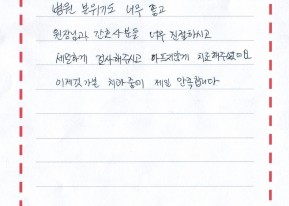 병원 분위기도 너무 좋고
원장님과 간호사분들 너무 친절하시고
세밀하게 검사해주시고 아프지않게 치료해주셨어요
이제것 가본 치과 중에 제일 만족합니다